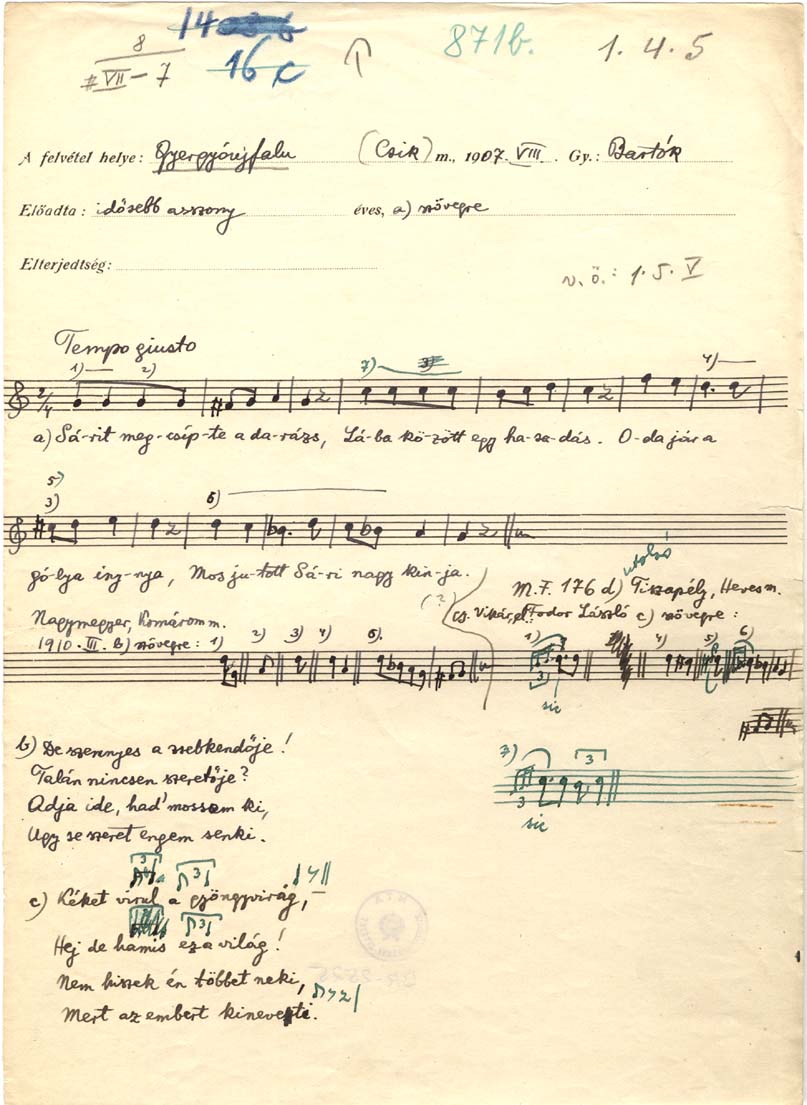 14
8
16 c
871b.
1. 4. 5
# VII – 7
A felvétel helye: Gyergyóújfalu (Csik) m., 1907. VIII. Gy.: Bartók
Előadta: idősebb asszony éves, a) szövegre
Elterjedtség:
v. ö.: 1. 5. V
Tempo giusto
1) 2) 7) 3 4)
2/4
a) Sá-rit meg-csíp-te a da-rázs, Lá-ba kö-zött egy ha-sa-dás. O-da jár a
5)
3) 6)
gó-lya ing-nya, Mos ju-tott Sá-ri nagy kin-ja.
utolsó
M.F. 176 d) Tiszapély, Heves m.
(?)
Nagymegyer, Komárom m.
Fodor László c) szövegre:
1910. III. b) szövegre: 1) 2) 3) 4) 6)
1) 4) 5) 6)
3
sic
b) De szennyes a zsebkendője!
Talán nincsen szeretője?
Adja ide, had' mossam ki,
Ugy se szeret engem senki.
7) 3
3
sic
3 3
c) Kéket virul a gyöngyvirág,
3
Hej de hamis ez a világ!
Nem hiszek én többet neki,
Mert az embert kineveti.